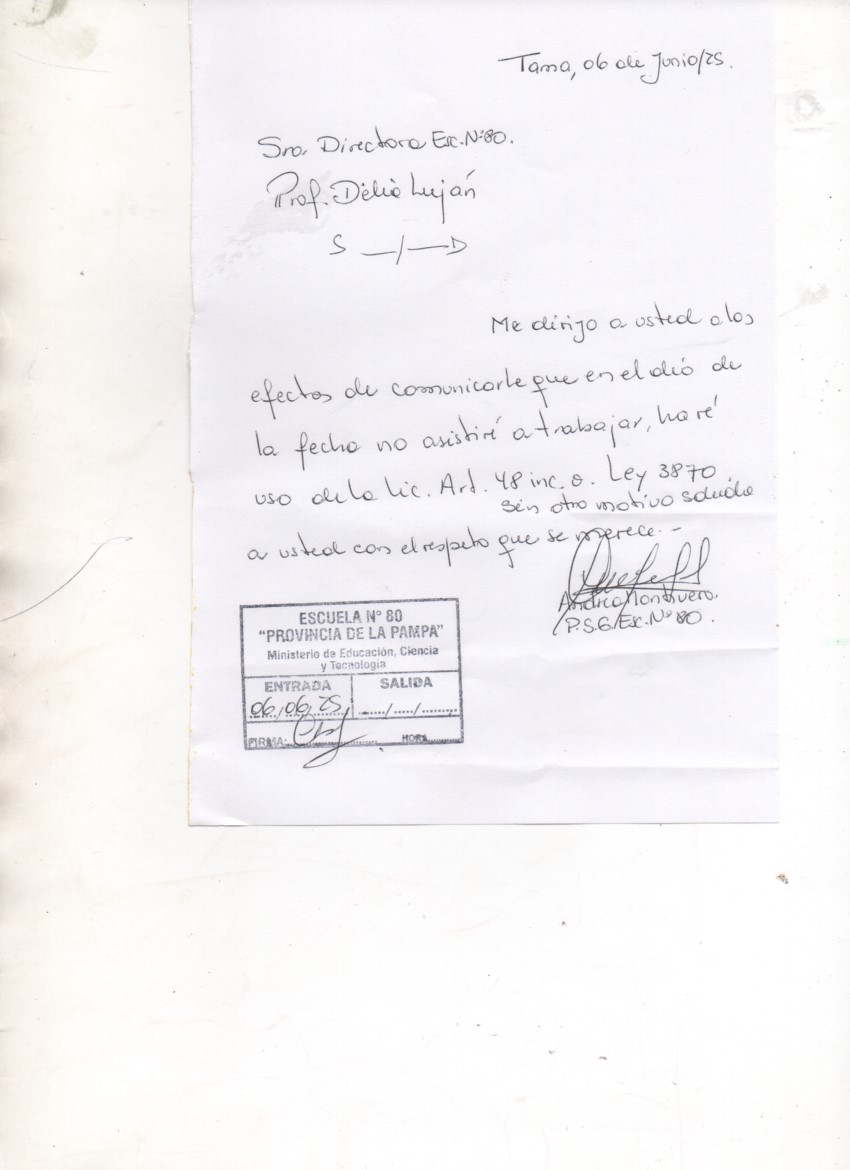 Tama, 06 de Junio/25.
Sra. Directora Esc. Nº 80.
Prof. Delia Luján
S —/— D
Me dirijo a usted a los
efectos de comunicarle que en el día de
la fecha no asistiré a trabajar, haré
uso de la lic. Art. 48 inc. a. Ley 3870.
Sin otro motivo saludo
a usted con el respeto que se merece.-
Andrea Montivero.
P.S.G. Esc. Nº 80.
ESCUELA Nº 80
"PROVINCIA DE LA PAMPA"
Ministerio de Educación, Ciencia
y Tecnología
ENTRADA SALIDA
06/06/25 ...../...../.........
FIRMA: HORA